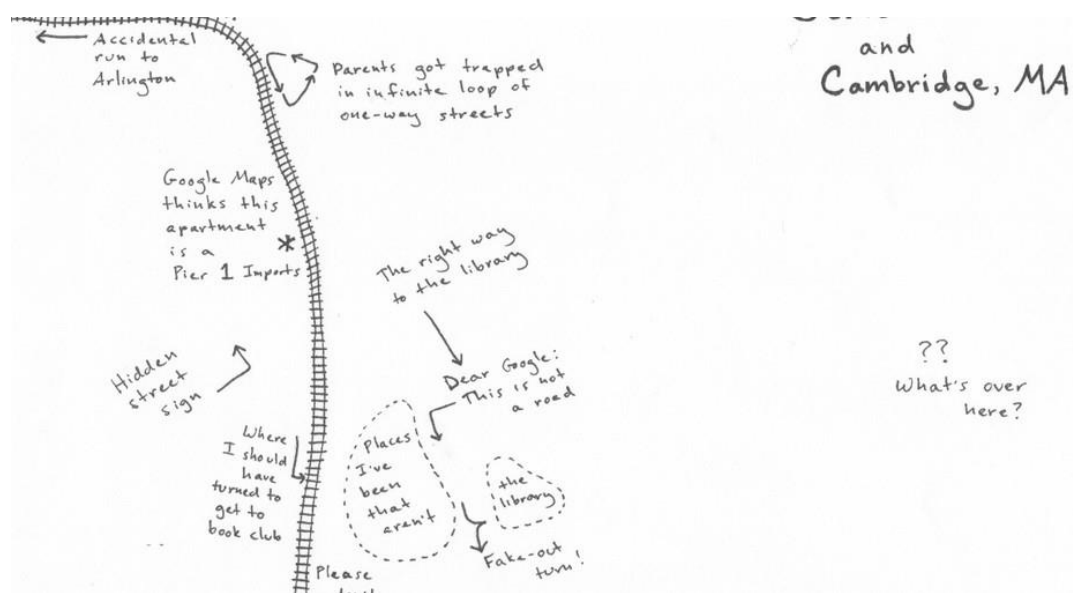 and
Cambridge, MA
Accidental
run to
Arlington
Parents got trapped
in infinite loop of
one-way streets
Google Maps
thinks this
apartment
is a
Pier 1 Imports
*
The right way
to the library
Hidden
street
sign
Dear Google:
This is not
a road
??
What's over
here?
Where
I should
have
turned to
get to
book club
Places
I've
been
that
aren't
the
library
Fake-out
turn!
Please